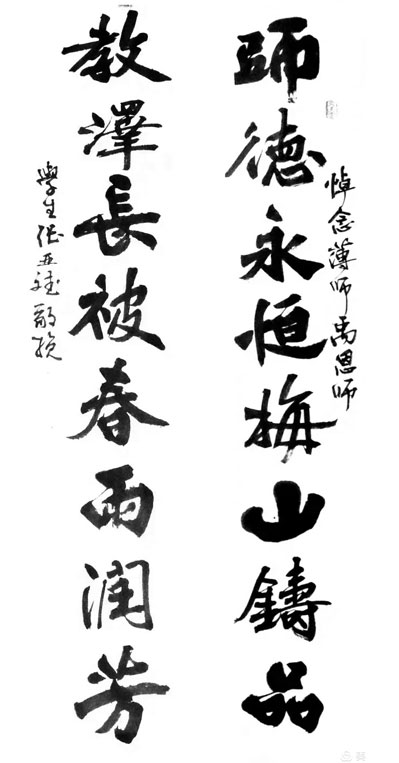 悼念薄师禹恩师
師德永恒梅山鑄品
教澤長被春雨润芳
學生张亚斌敬挽